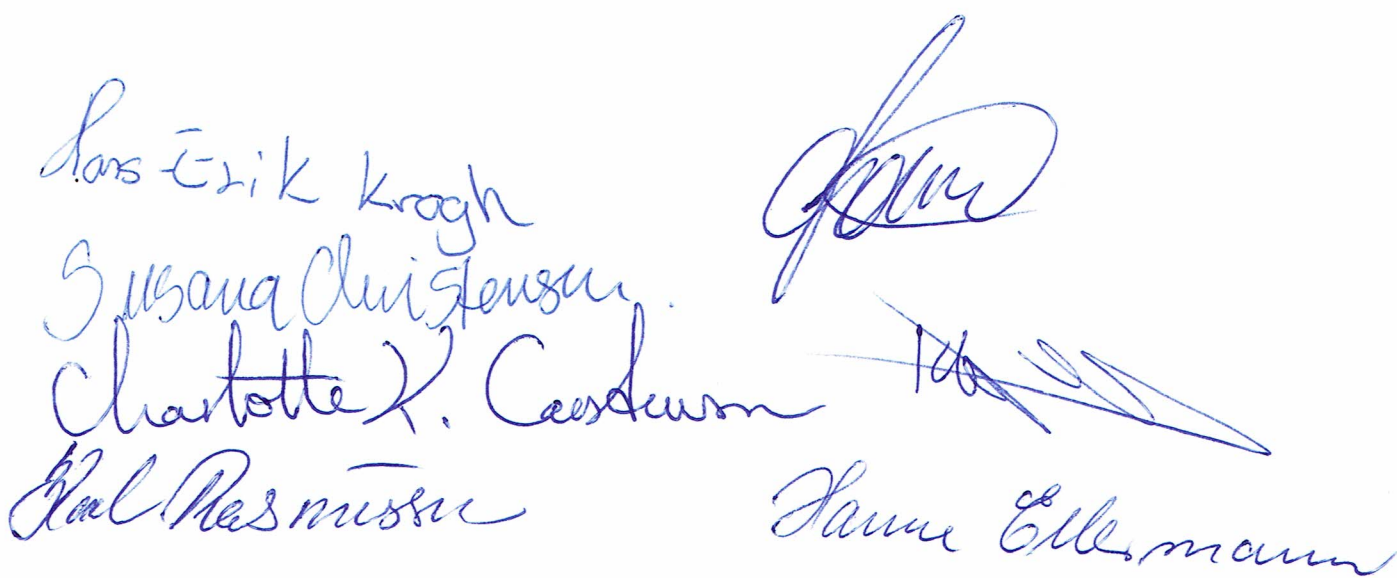 Lars-Erik Krogh
Susana Christensen
Charlotte K. Carstensen
Rasmussen
Hanne Ellermann